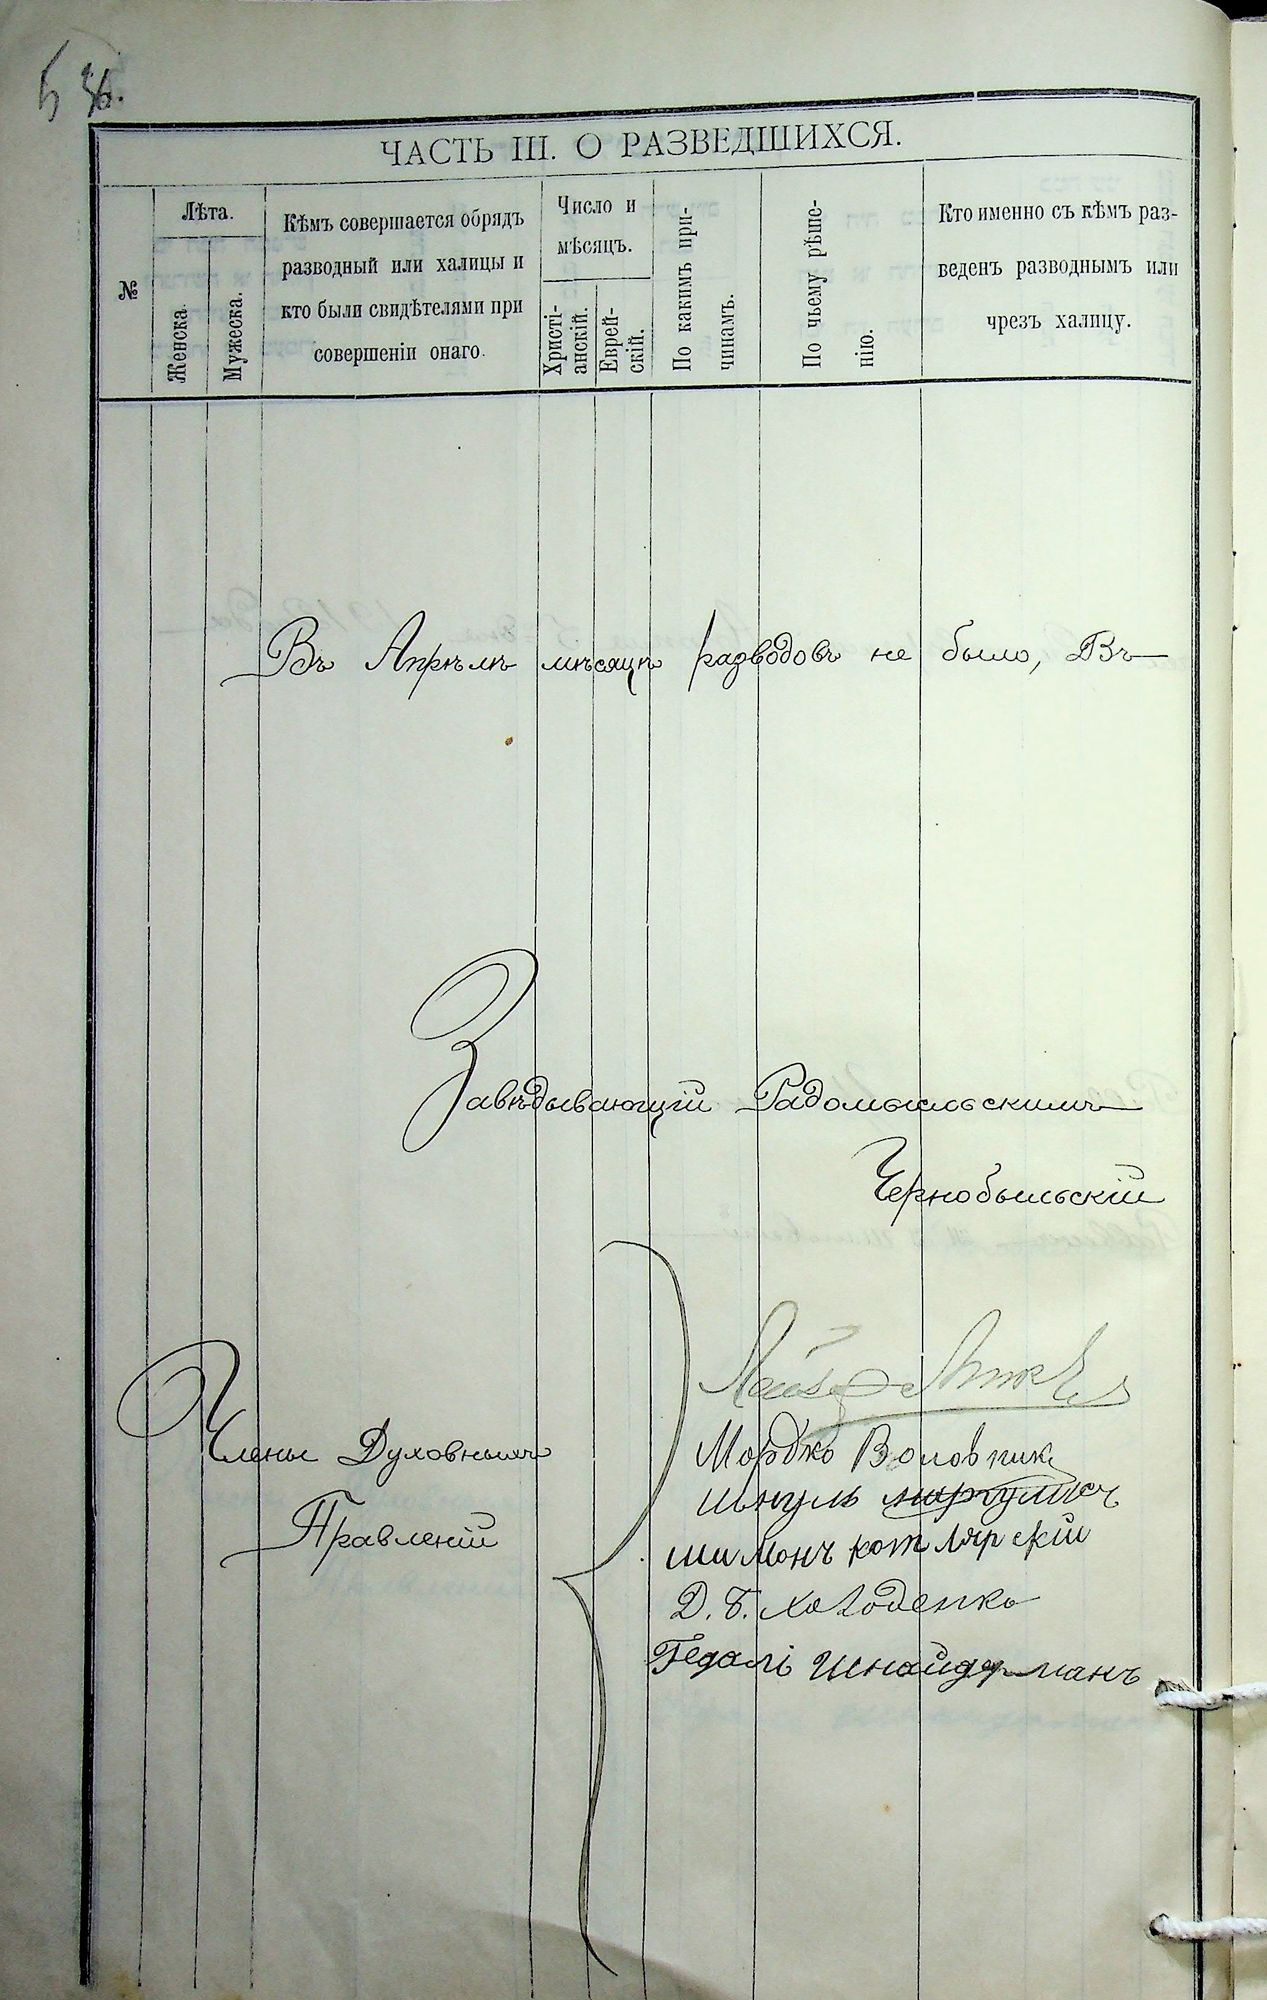 ЧАСТЬ III. О РАЗВЕДШИХСЯ.
№
Лѣта.
Женска.
Мужеска.
Кѣмъ совершается обрядъ
разводный или халицы и
кто были свидѣтелями при
совершеніи онаго.
Число и
мѣсяцъ.
Христі-
анскій.
Еврей-
скій.
По какимъ при-
чинамъ.
По чьему рѣше-
нію.
Кто именно съ кѣмъ раз-
веденъ разводнымъ или
чрезъ халицу.
Въ Апрѣлѣ мѣсяцѣ разводовъ не было, Въ
Завѣдывающій Радомысльскимъ
Чернобыльскій
Члены Духовныхъ
Правленій
Мордко Воловник
Шимонъ Котлярскій
Д. Б. Холоденко
Гедалі Шнайдерманъ